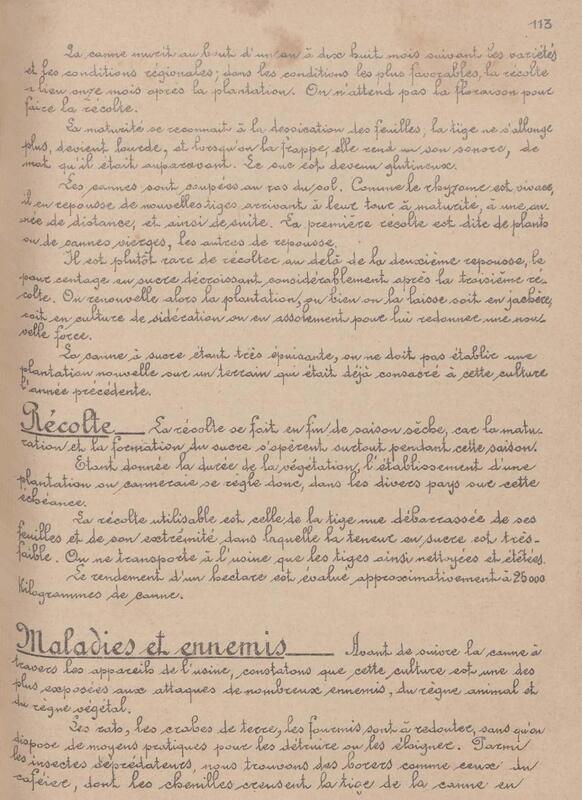 113
La canne murit au bout d'un an à dix huit mois suivant les variétés
et les conditions régionales; dans les conditions les plus favorables, la récolte
a lieu onze mois après la plantation. On n'attend pas la floraison pour
faire la récolte.
La maturité se reconnait à la dessication des feuilles; la tige ne s'allonge
plus, devient lourde, et lorsqu'on la frappe, elle rend un son sonore, de
mat qu'il était auparavant. Le suc est devenu glutineux.
Les cannes sont coupées au ras du sol. Comme le rhyzome est vivace,
il en repousse de nouvelles tiges arrivant à leur tour à maturité, à une an-
née de distance, et ainsi de suite. La première récolte est dite de plants
ou de cannes vierges, les autres de repousse.
Il est plutôt rare de récolter au delà de la deuxième repousse, le
pourcentage en sucre décroissant considérablement après la troisième ré-
colte. On renouvelle alors la plantation, ou bien on la laisse soit en jachère,
soit en culture de sidération ou en assolement pour lui redonner une nou-
velle force.
La canne à sucre étant très épuisante, on ne doit pas établir une
plantation nouvelle sur un terrain qui était déjà consacré à cette culture
l'année précédente.
Récolte La récolte se fait en fin de saison sèche, car la matu-
ration et la formation du sucre s'opèrent surtout pendant cette saison.
Etant donnée la durée de la végétation, l'établissement d'une
plantation ou canneraie se règle donc, dans les divers pays sur cette
échéance.
La récolte utilisable est celle de la tige nue débarrassée de ses
feuilles et de son extrémité dans laquelle la teneur en sucre est très-
faible. On ne transporte à l'usine que les tiges ainsi nettoyées et étêtées.
Le rendement d'un hectare est évalué approximativement à 25000
Kilogrammes de canne.
Maladies et ennemis Avant de suivre la canne à
travers les appareils de l'usine, constatons que cette culture est une des
plus exposées aux attaques de nombreux ennemis, du règne animal et
du règne végétal.
Les rats, les crabes de terre, les fourmis sont à redouter, sans qu'on
dispose de moyens pratiques pour les détruire ou les éloigner. Parmi
les insectes déprédateurs, nous trouvons des borers comme ceux du
caféier, dont les chenilles creusent la tige de la canne en